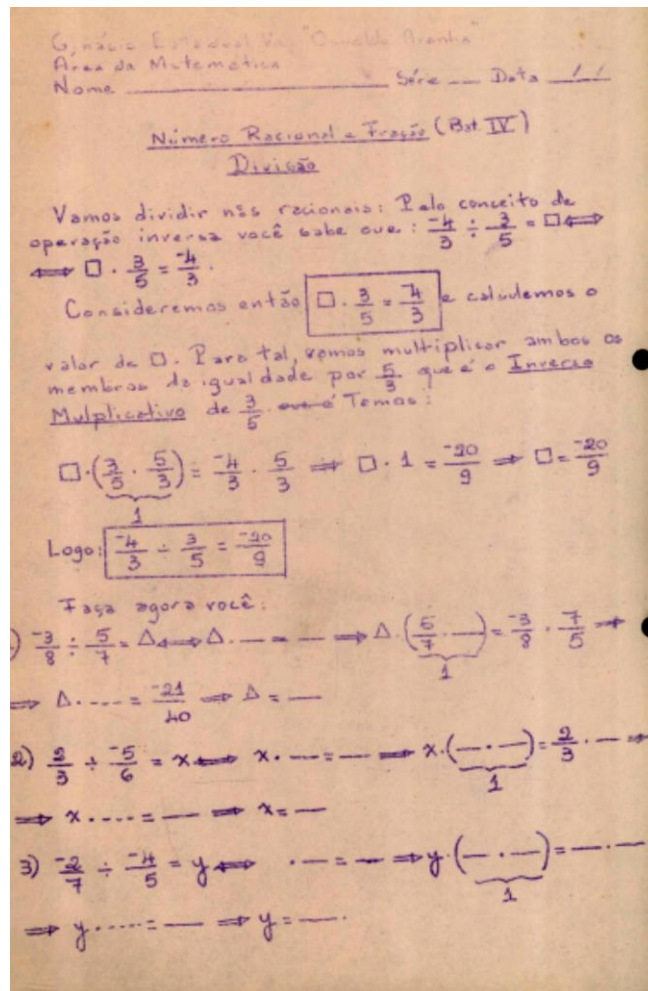 Ginásio Estadual Voc. "Oswaldo Aranha"
Área da Matemática
Nome ____________ Série ___ Data _/_/
Número Racional e Fração (Bat. IV)
Divisão
Vamos dividir nos racionais: Pelo conceito de
operação inversa você sabe que: ⁻4/3 ÷ 3/5 = □ ⟺
⟺ □ · 3/5 = ⁻4/3.
Consideremos então □ · 3/5 = ⁻4/3 e calculemos o
valor de □. Para tal, vamos multiplicar ambos os
membros da igualdade por 5/3 que é o Inverso
Mulplicativo de 3/5. que é Temos:
□ · (3/5 · 5/3) = ⁻4/3 · 5/3 ⟹ □ · 1 = ⁻20/9 ⟹ □ = ⁻20/9
1
Logo: ⁻4/3 ÷ 3/5 = ⁻20/9
Faça agora você:
) ⁻3/8 ÷ 5/7 = Δ ⟺ Δ · — = — ⟹ Δ · (5/7 · —) = ⁻3/8 · 7/5 ⟹
1
⟹ Δ · ---- = ⁻21/40 ⟹ Δ = —
2) 2/3 ÷ ⁻5/6 = x ⟺ x · — = — ⟹ x · (— · —) = 2/3 · — ⟹
1
⟹ x · ---- = — ⟹ x = —
3) ⁻2/7 ÷ ⁻4/5 = y ⟺ · — = — ⟹ y · (— · —) = — · —
1
⟹ y · ---- = — ⟹ y = —.